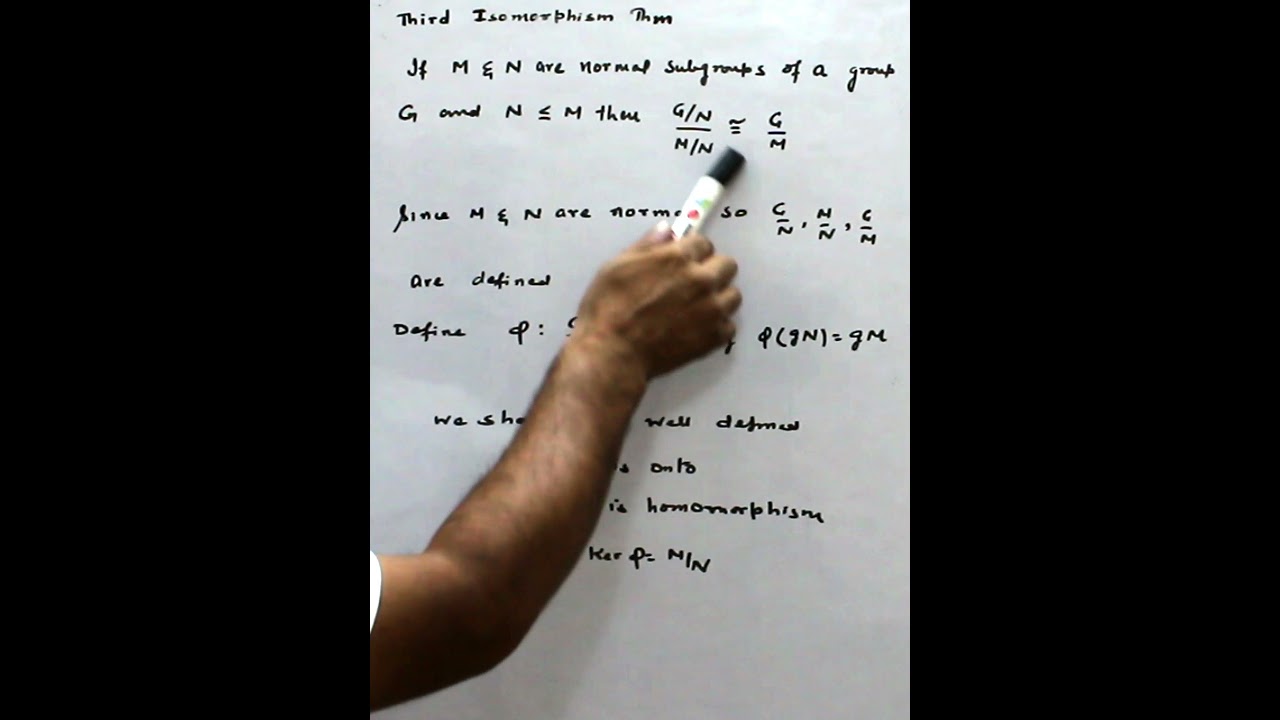 Third Isomorphism Thm
If M & N are normal subgroups of a group
G and N ≤ M then (G/N)/(M/N) ≅ G/M
Since M & N are so G/N, M/N, G/M
are defined
Define φ: φ(gN) = gM
we well defined
onto
is homomorphism
Ker φ = M/N